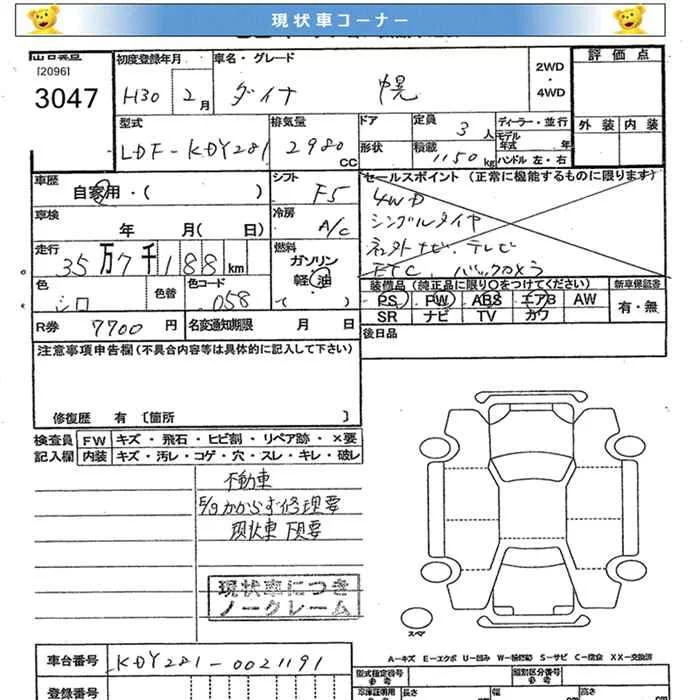 現状車コーナー
[2096]
3047
初度登録年月
H30 2月
車名・グレード
ダイナ 幌
2WD
・
4WD
評価点
外装 内装
型式
LDF-KDY281
排気量
2980 CC
ドア
形状
定員 3人
積載 1150 kg
ディーラー・並行
モデル年式 年
ハンドル 左・右
車歴
自家用・( )
シフト
F5
車検
年 月( 日)
冷房
A/C
走行
35万7千188km
燃料
ガソリン
軽油
( )
色
シロ
色替
色コード
058
R券 7700 円
名変通知期限 月 日
セールスポイント (正常に機能するものに限ります)
4WD
シングルタイヤ
社外ナビ、テレビ
ETC、バックカメラ
装備品 (純正品に限り○をつけてください)
新車保証書
PS PW ABS エアB AW
SR ナビ TV カワ
有・無
後日品
注意事項申告欄(不具合内容等は具体的に記入して下さい)
修復歴 有 〔箇所 〕
検査員
記入欄
FW キズ・飛石・ヒビ割・リペア跡・×要
内装 キズ・汚レ・コゲ・穴・スレ・キレ・破レ
不動車
E/gかからず修理要
現状車 下見要
現状車につき
ノークレーム
スペア
A-キズ E-エクボ U-凹み W-補修跡 S-サビ C-腐食 XX-交換済
車台番号 KDY281-0021191
登録番号
型式指定番号
参考
類別区分番号
参考
長さ
幅
高さ